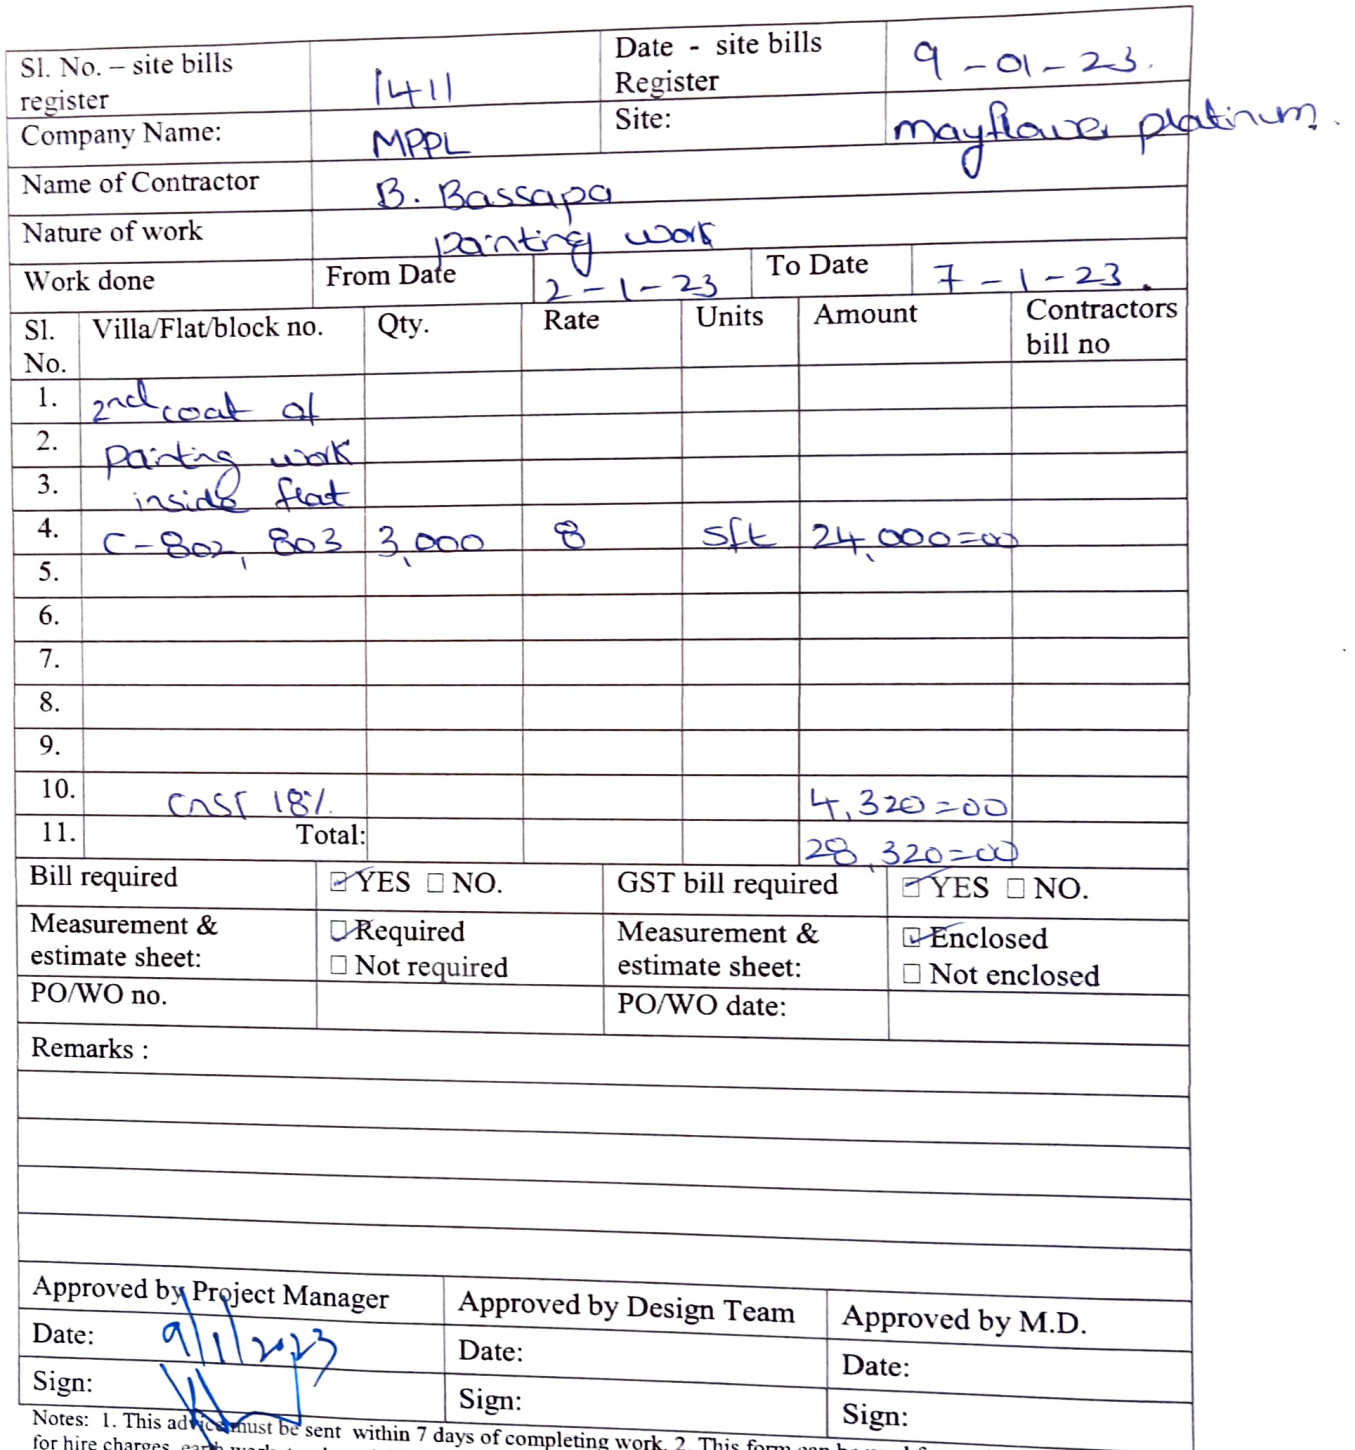 Sl. No. – site bills register 1411 Date - site bills Register 9-01-23.
Company Name: MPPL Site: mayflower platinum.
Name of Contractor B. Bassapa
Nature of work painting work
Work done From Date 2-1-23 To Date 7-1-23.
Sl. No. Villa/Flat/block no. Qty. Rate Units Amount Contractors bill no
1. 2nd coat of
2. Painting work
3. inside flat
4. C-802, 803 3,000 8 sft 24,000=00
5.
6.
7.
8.
9.
10. GST 18% 4,320=00
11. Total: 28,320=00
Bill required YES NO. GST bill required YES NO.
Measurement & estimate sheet: Required Not required Measurement & estimate sheet: Enclosed Not enclosed
PO/WO no. PO/WO date:
Remarks :
Approved by Project Manager Approved by Design Team Approved by M.D.
Date: 9/1/2023 Date: Date:
Sign: Sign: Sign:
Notes: 1. This advice must be sent within 7 days of completing work. 2. This form can be
for hire charges,